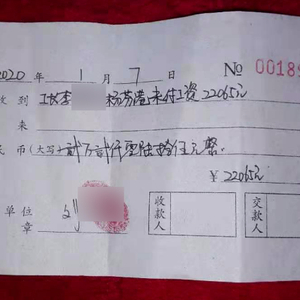 2020年1月7日 № 00189
收到 工长李 杨芬贵来付工资22065元
来
民币(大写)计万计仟零陆拾伍元整
¥22065元
单位章 收款人 交款人